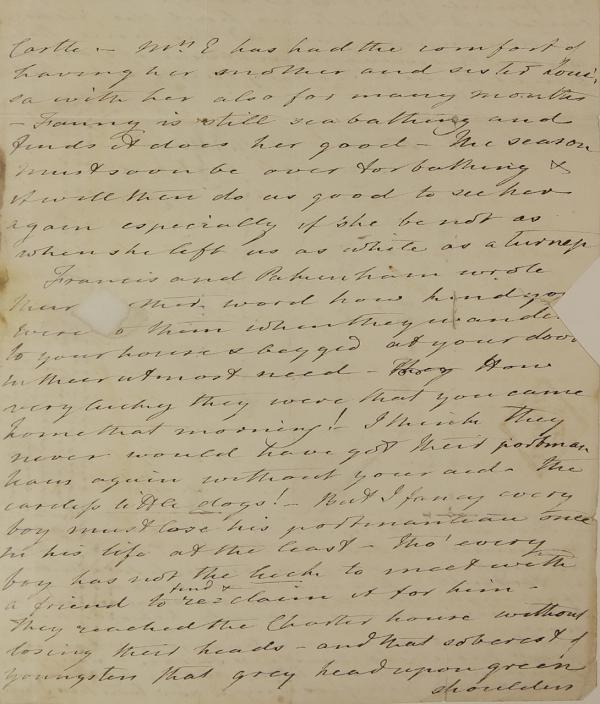 Castle - Mrs E has had the comfort of
having her mother and sister Loui,
sa with her also for many months
- Fanny is still sea bathing and
finds it does her good - The season
must soon be over for bathing &
it will then do us good to see her
again especially if she be not as
when she left us as white as a turnep
Francis and Pakenham wrote
their word how kind you
were to them when they wander
to your house & begged at your door
in their utmost need - How
very lucky they were that you came
home that morning! - I think they
never would have got their portman
teaus again without your aid - The
careless little dogs! - But I fancy every
boy must lose his portmanteau once
in his life at the least - Tho' every
boy has not the luck to meet with
a friend to find & re=claim it for him -
They reached the Charter house without
losing their heads - and that soberest of
youngsters that grey head upon green
shoulders